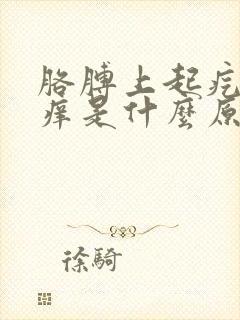 胳膊上起疙
痒是什麼原
徐騎